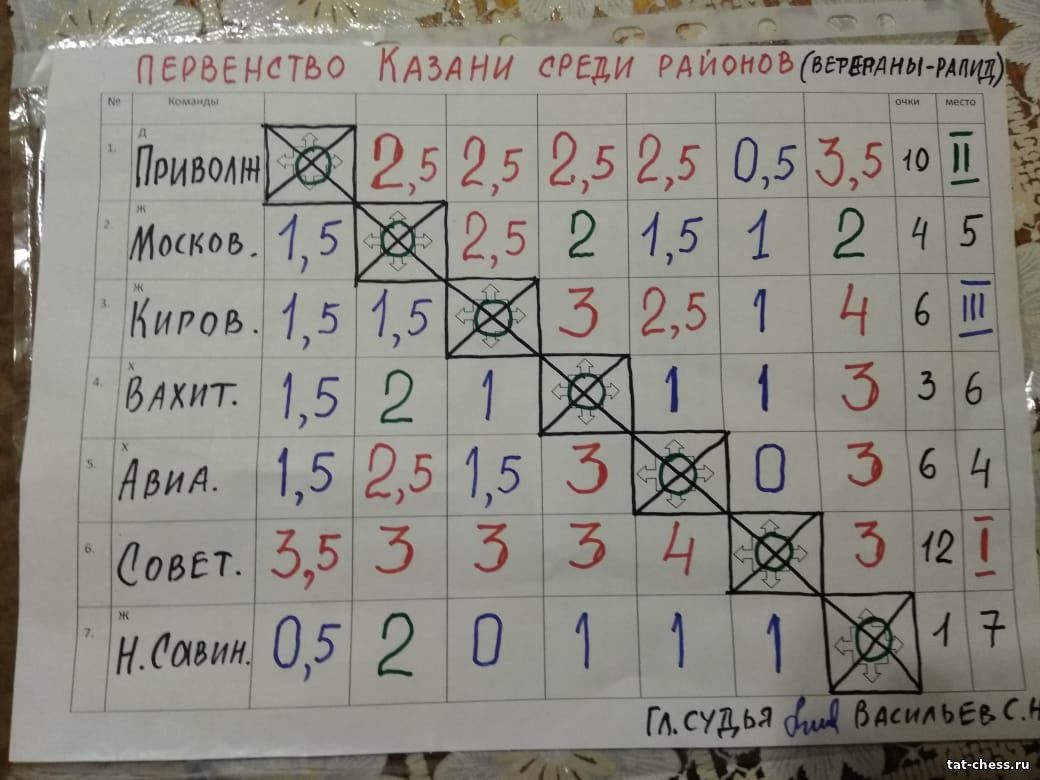 ПЕРВЕНСТВО КАЗАНИ СРЕДИ РАЙОНОВ (ВЕТЕРАНЫ-РАПИД)
№ Команды очки место
1. Д ПРИВОЛЖ 2,5 2,5 2,5 2,5 0,5 3,5 10 II
2. Ж МОСКОВ. 1,5 2,5 2 1,5 1 2 4 5
3. Ж КИРОВ. 1,5 1,5 3 2,5 1 4 6 III
4. Х ВАХИТ. 1,5 2 1 1 1 3 3 6
5. Х АВИА. 1,5 2,5 1,5 3 0 3 6 4
6. СОВЕТ. 3,5 3 3 3 4 3 12 I
7. Ж Н.САВИН. 0,5 2 0 1 1 1 1 7
ГЛ.СУДЬЯ ВАСИЛЬЕВ С.Н
tat-chess.ru